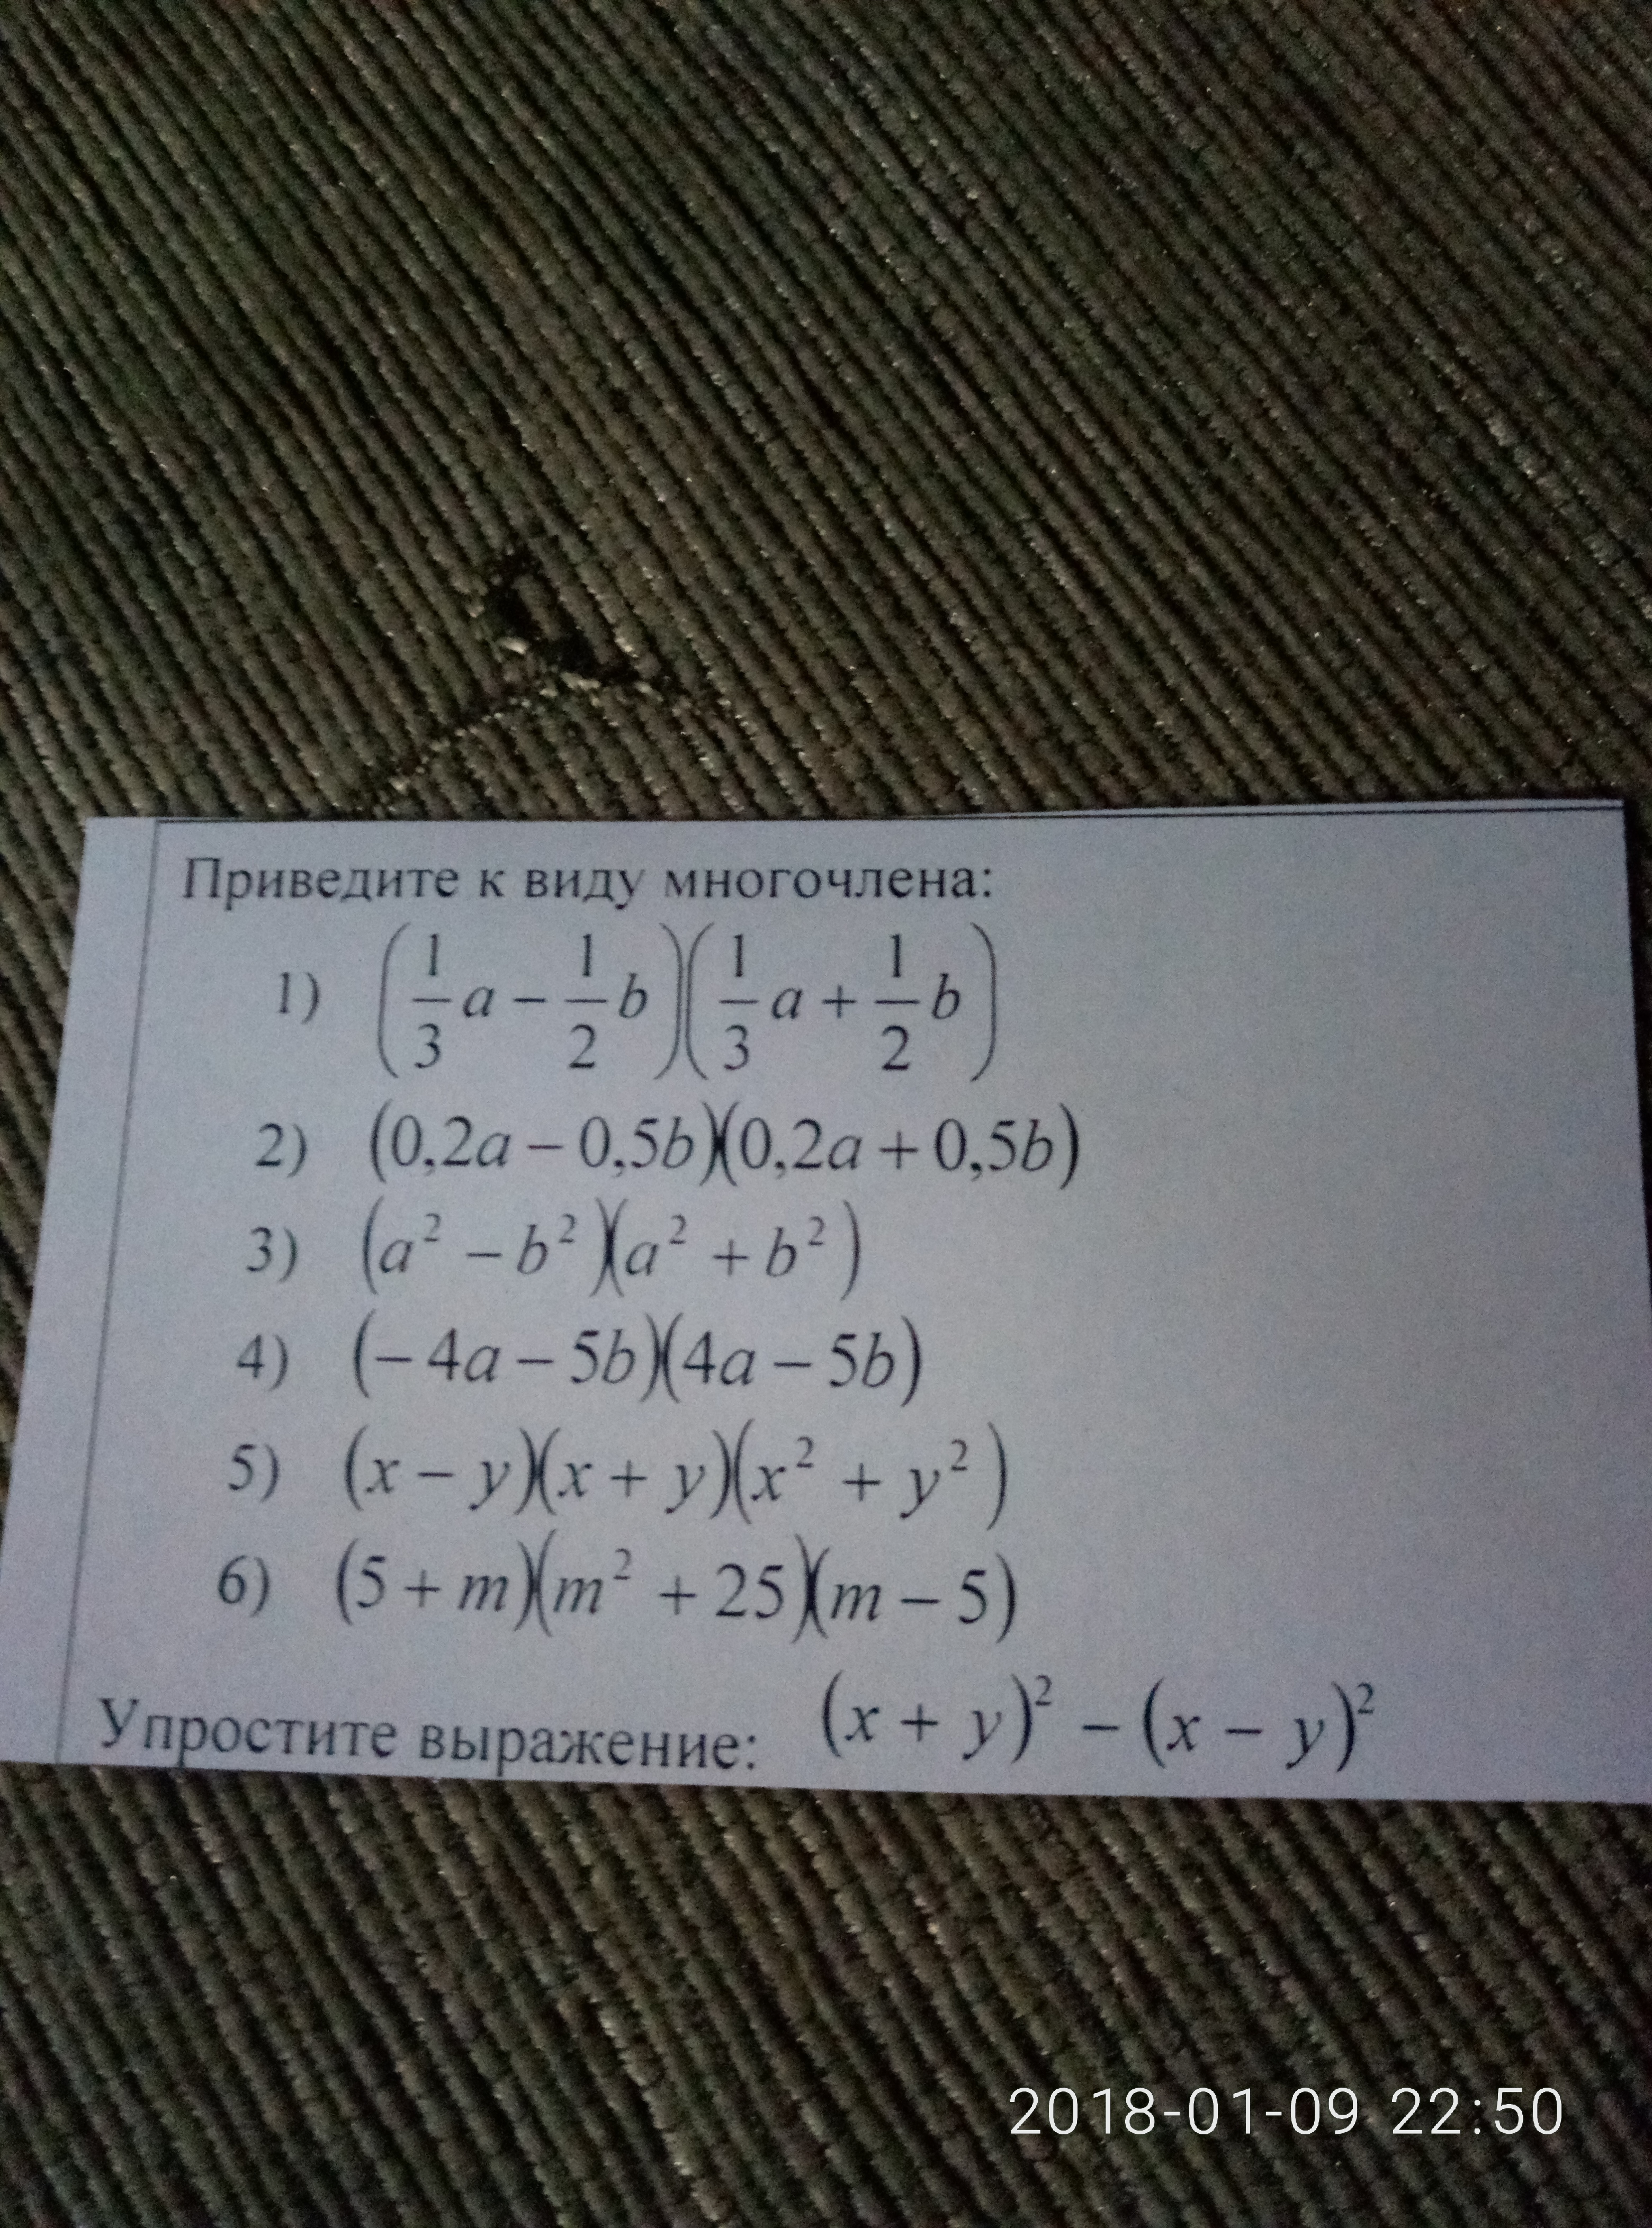 Приведите к виду многочлена:
1) (1/3 a − 1/2 b)(1/3 a + 1/2 b)
2) (0,2a − 0,5b)(0,2a + 0,5b)
3) (a² − b²)(a² + b²)
4) (− 4a − 5b)(4a − 5b)
5) (x − y)(x + y)(x² + y²)
6) (5 + m)(m² + 25)(m − 5)
Упростите выражение: (x + y)² − (x − y)²
2018-01-09 22:50